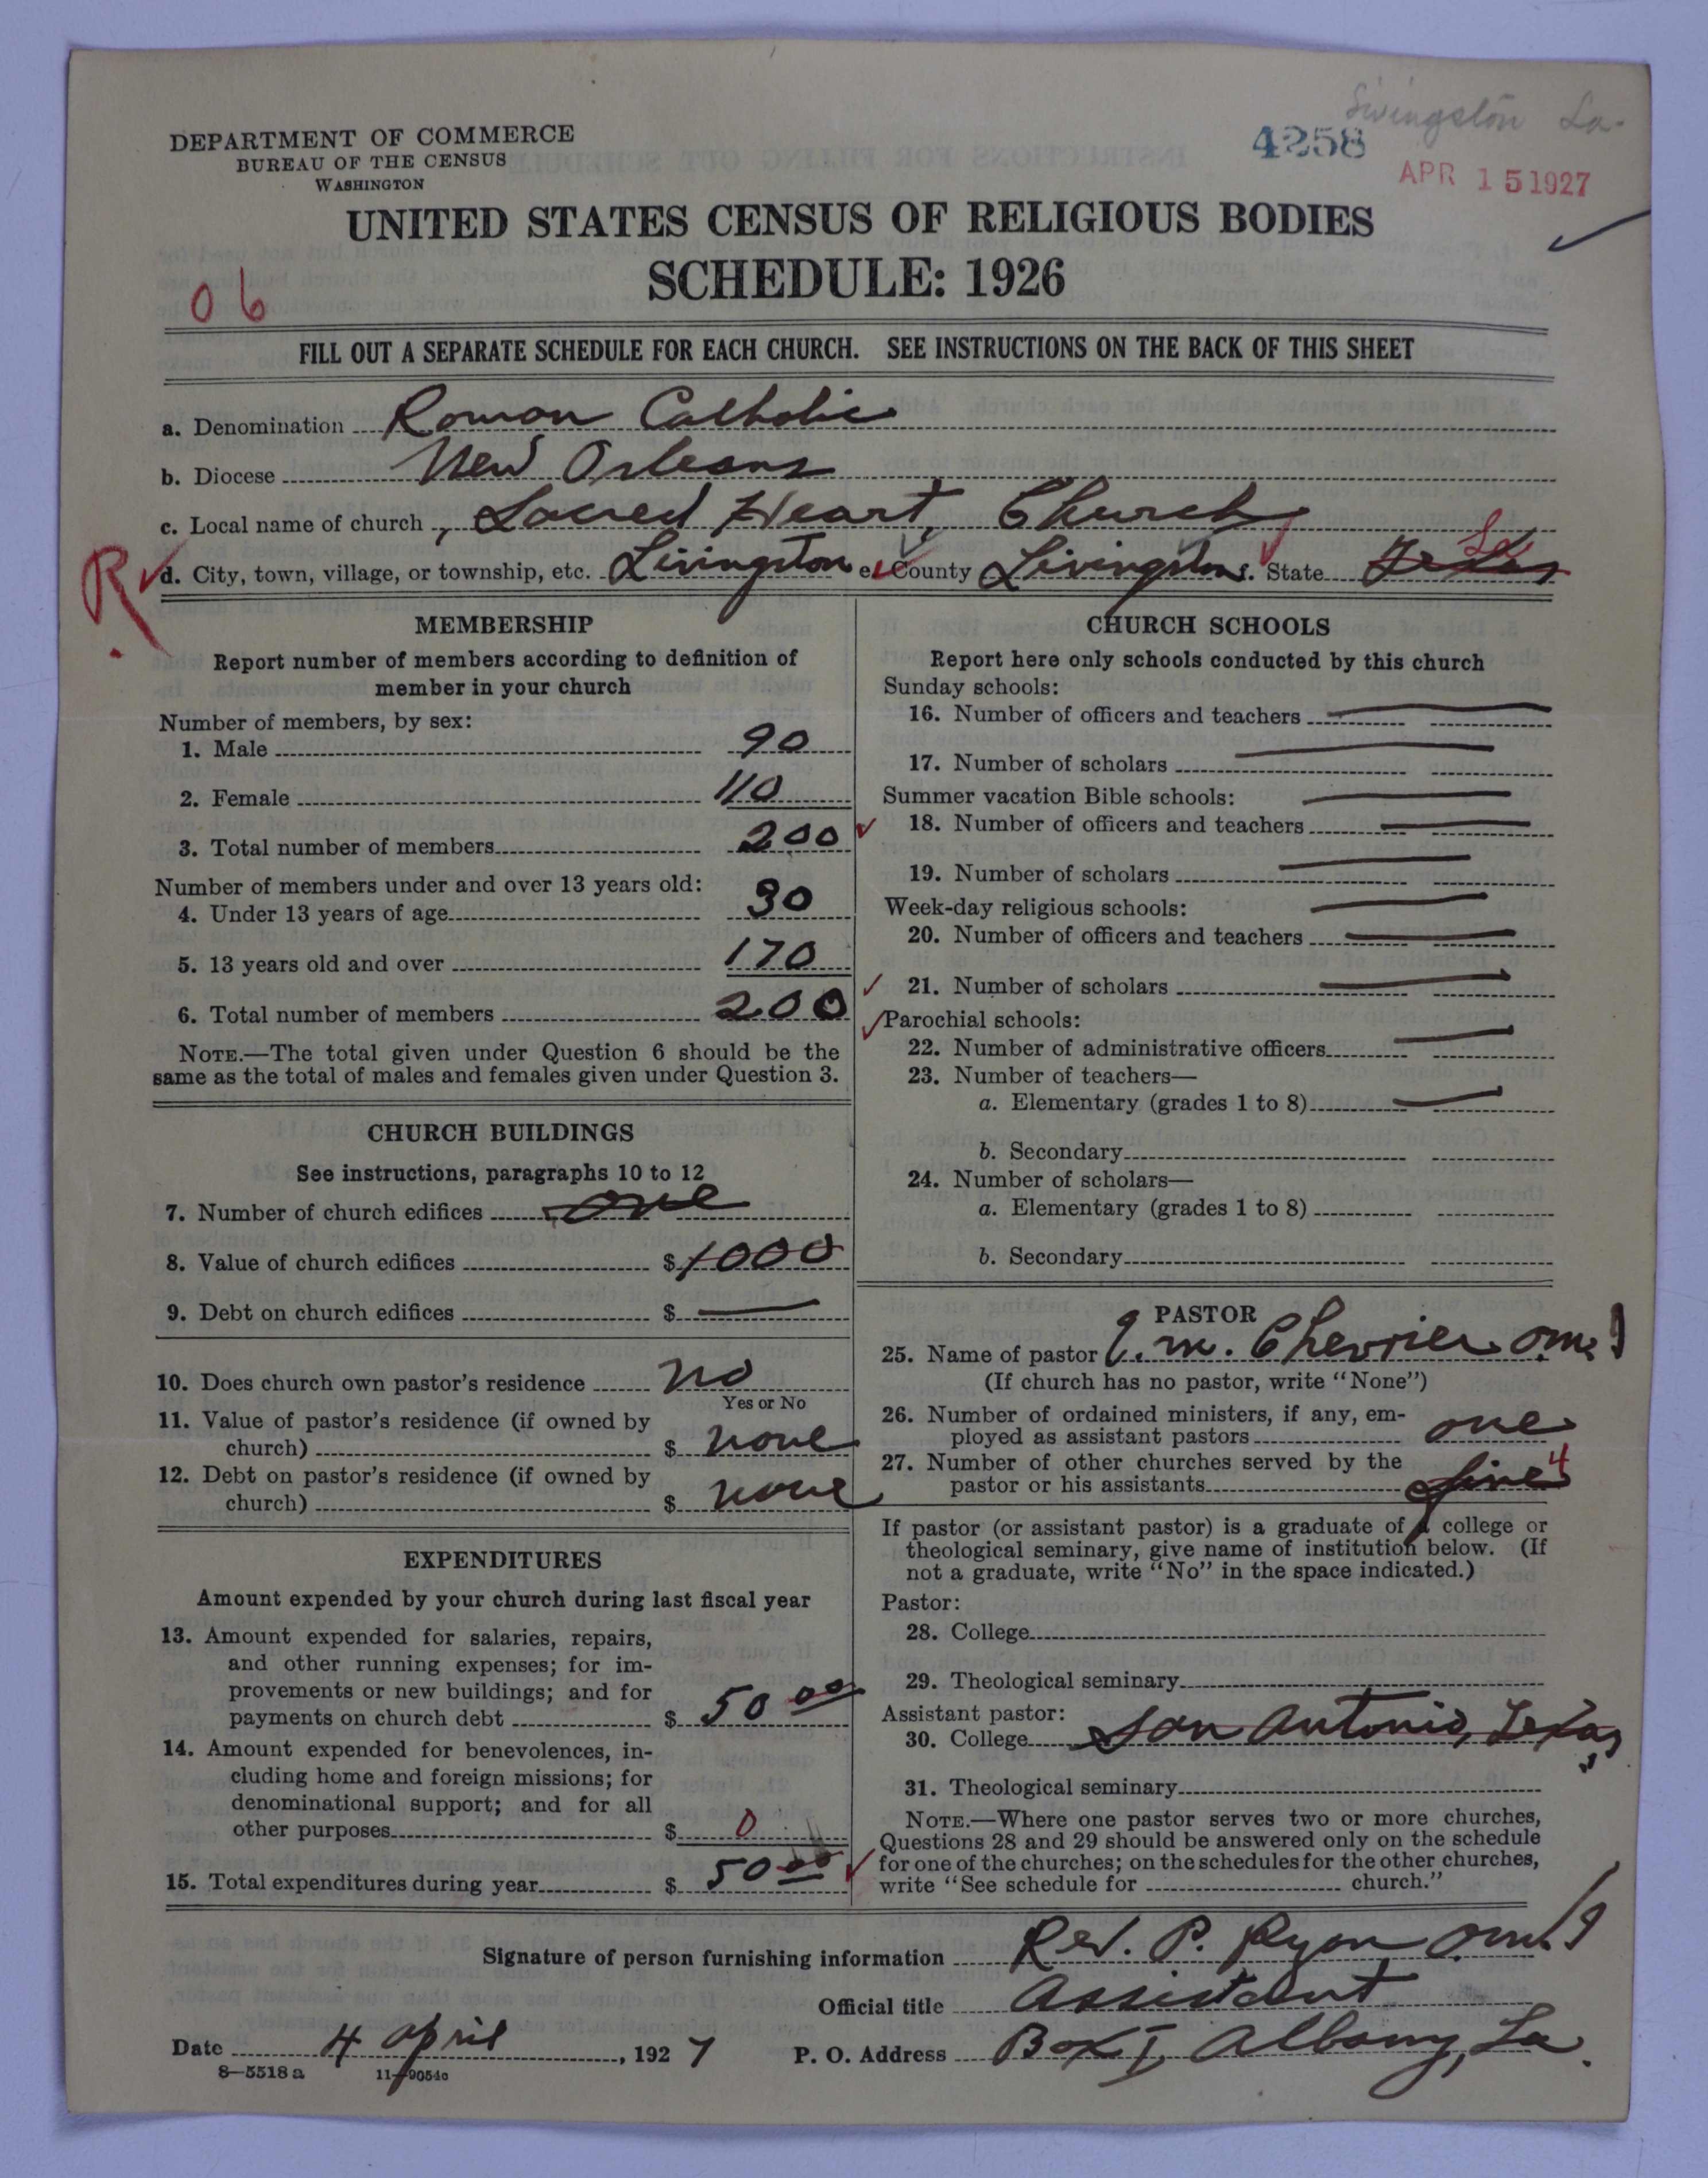 Livingston La.
4258
APR 15 1927
DEPARTMENT OF COMMERCE
BUREAU OF THE CENSUS
WASHINGTON
UNITED STATES CENSUS OF RELIGIOUS BODIES
SCHEDULE: 1926
06
FILL OUT A SEPARATE SCHEDULE FOR EACH CHURCH. SEE INSTRUCTIONS ON THE BACK OF THIS SHEET
a. Denomination Roman Catholic
b. Diocese New Orleans
c. Local name of church Sacred Heart, Church
R d. City, town, village, or township, etc. Livingston e. County Livingston f. State Texas La
MEMBERSHIP
Report number of members according to definition of
member in your church
Number of members, by sex:
1. Male 90
2. Female 110
3. Total number of members 200
Number of members under and over 13 years old:
4. Under 13 years of age 30
5. 13 years old and over 170
6. Total number of members 200
NOTE.—The total given under Question 6 should be the
same as the total of males and females given under Question 3.
CHURCH BUILDINGS
See instructions, paragraphs 10 to 12
7. Number of church edifices one
8. Value of church edifices $ 1000
9. Debt on church edifices $ —
10. Does church own pastor's residence no
Yes or No
11. Value of pastor's residence (if owned by
church) $ none
12. Debt on pastor's residence (if owned by
church) $ none
EXPENDITURES
Amount expended by your church during last fiscal year
13. Amount expended for salaries, repairs,
and other running expenses; for im-
provements or new buildings; and for
payments on church debt $ 50 00
14. Amount expended for benevolences, in-
cluding home and foreign missions; for
denominational support; and for all
other purposes $ 0
15. Total expenditures during year $ 50 00
CHURCH SCHOOLS
Report here only schools conducted by this church
Sunday schools:
16. Number of officers and teachers —
17. Number of scholars —
Summer vacation Bible schools: —
18. Number of officers and teachers —
19. Number of scholars —
Week-day religious schools: —
20. Number of officers and teachers —
21. Number of scholars —
Parochial schools:
22. Number of administrative officers —
23. Number of teachers—
a. Elementary (grades 1 to 8) —
b. Secondary
24. Number of scholars—
a. Elementary (grades 1 to 8)
b. Secondary
PASTOR
25. Name of pastor J. M. Chevrier O.M.I
(If church has no pastor, write "None")
26. Number of ordained ministers, if any, em-
ployed as assistant pastors one
27. Number of other churches served by the
pastor or his assistants five 4
If pastor (or assistant pastor) is a graduate of a college or
theological seminary, give name of institution below. (If
not a graduate, write "No" in the space indicated.)
Pastor:
28. College
29. Theological seminary
Assistant pastor:
30. College San Antonio, Texas
31. Theological seminary
NOTE.—Where one pastor serves two or more churches,
Questions 28 and 29 should be answered only on the schedule
for one of the churches; on the schedules for the other churches,
write "See schedule for church."
Signature of person furnishing information Rev. P. Ryan O.M.I
Official title Assistant
Date 4 April, 1927 P. O. Address Box I, Albany, La.
8—5518 a 11—9054a